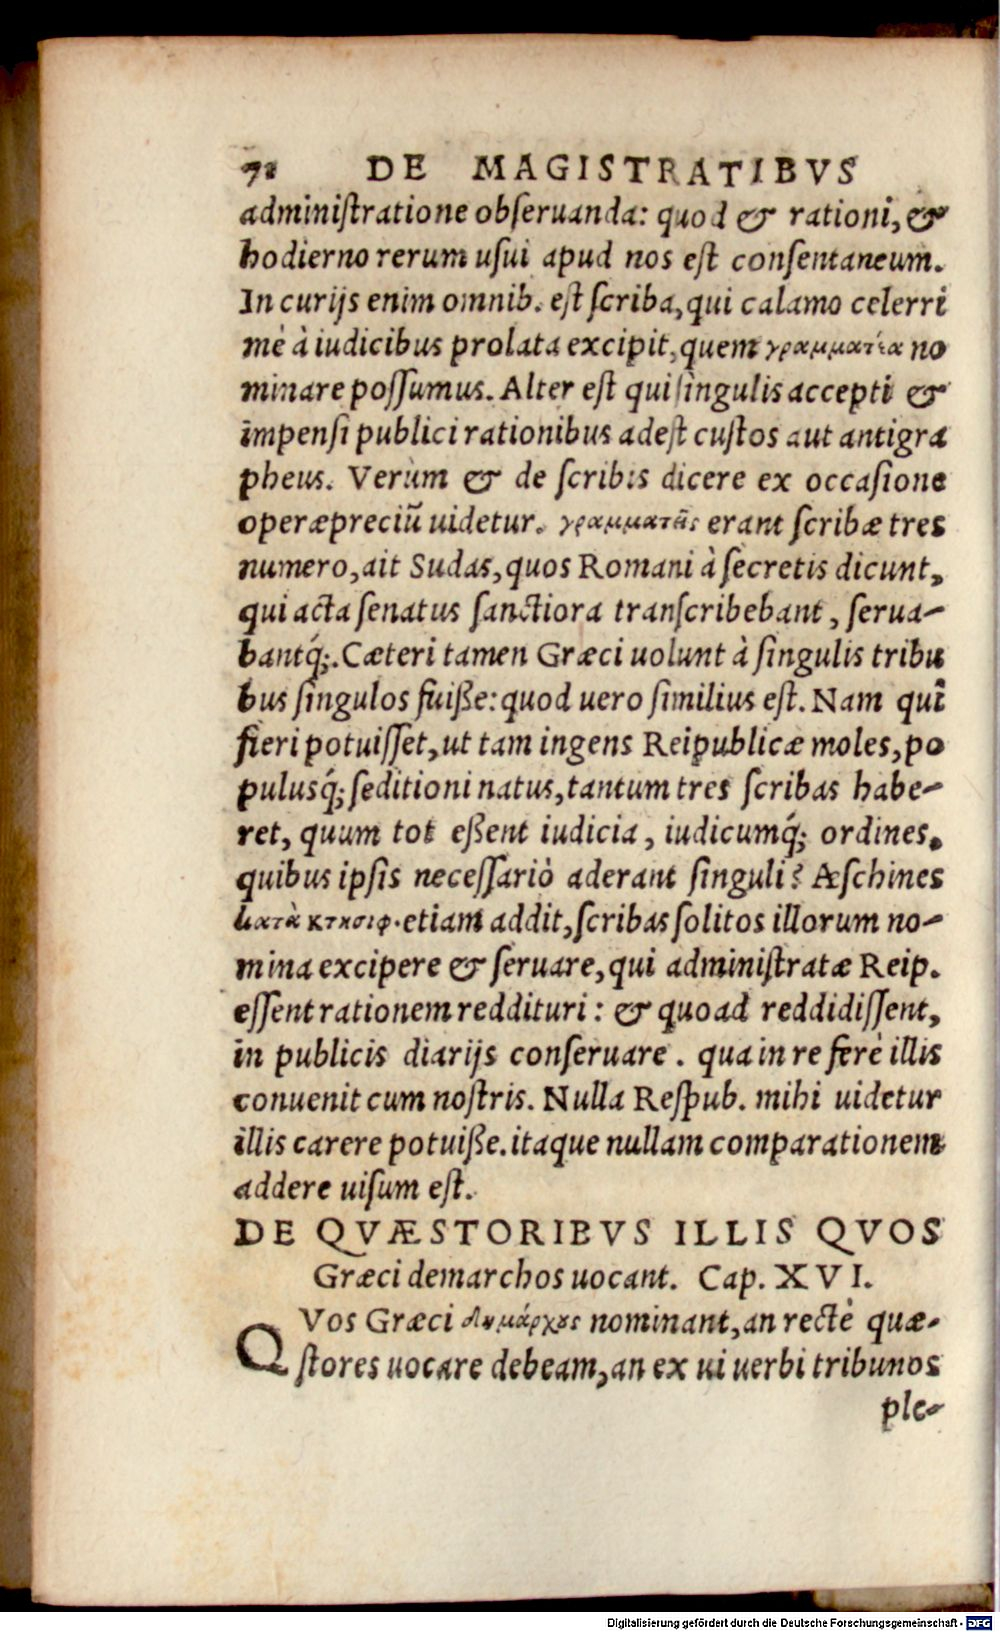 72 DE MAGISTRATIBVS
administratione obseruanda: quod & rationi, &
hodierno rerum usui apud nos est consentaneum.
In curijs enim omnib. est scriba, qui calamo celerri
mè à iudicibus prolata excipit, quem γραμματέα no
minare possumus. Alter est qui singulis accepti &
impensi publici rationibus adest custos aut antigra
pheus. Verùm & de scribis dicere ex occasione
operæpreciũ uidetur. γραμματεῖς erant scribæ tres
numero, ait Sudas, quos Romani à secretis dicunt,
qui acta senatus sanctiora transcribebant, serua-
bantq́;. Cæteri tamen Græci uolunt à singulis tribu
bus singulos fuiße: quod uero similius est. Nam quî
fieri potuisset, ut tam ingens Reipublicæ moles, po
pulusq́; seditioni natus, tantum tres scribas habe-
ret, quum tot eßent iudicia, iudicumq́; ordines,
quibus ipsis necessariò aderant singuli? Æschines
κατὰ κτησιφ. etiam addit, scribas solitos illorum no-
mina excipere & seruare, qui administratæ Reip.
essent rationem reddituri: & quoad reddidissent,
in publicis diarijs conseruare. qua in re ferè illis
conuenit cum nostris. Nulla Respub. mihi uidetur
illis carere potuiße. itaque nullam comparationem
addere uisum est.
DE QVÆSTORIBVS ILLIS QVOS
Græci demarchos uocant. Cap. XVI.
QVos Græci δημάρχους nominant, an rectè quæ-
stores uocare debeam, an ex ui uerbi tribunos
ple-
Digitalisierung gefördert durch die Deutsche Forschungsgemeinschaft - DFG